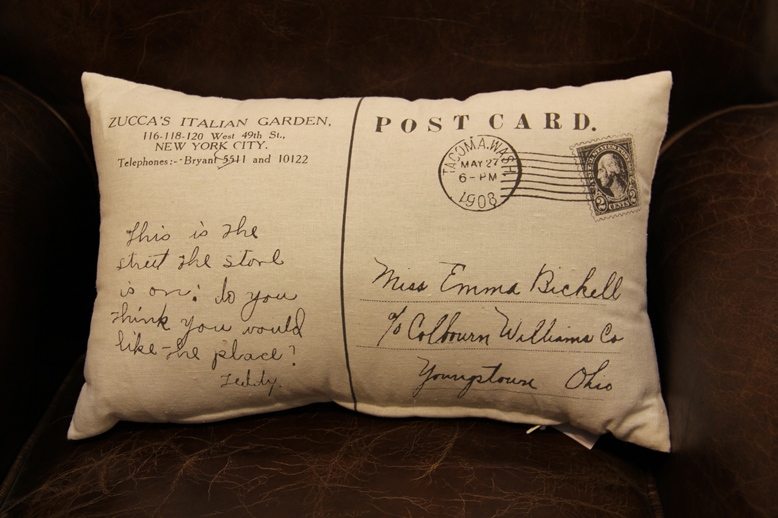 ZUCCA'S ITALIAN GARDEN,
116-118-120 West 49th St.,
NEW YORK CITY.
Telephones:--Bryant 5511 and 10122
This is the
street the store
is on: do you
think you would
like the place?
Teddy.
POST CARD.
TACOMA, WASH.
MAY 27
6-PM
1908
2 CENTS 2
Miss Emma Bickell
c/o Colbourn Williams Co
Youngstown Ohio